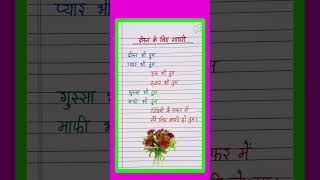 दोस्त के लिए शायरी
दोस्त भी तुम
प्यार भी तुम
एक भी तुम
हजार भी तुम
गुस्सा भी तुम
माफी भी तुम
जिंदगी के सफर में
मेरे लिए काफी हो तुम।
प्यार भी
गुस्सा भी
माफी भी
फर में
तुम।